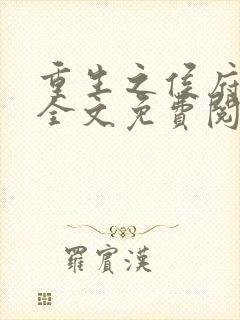 重生之侯府
全文免費閱
羅賓漢